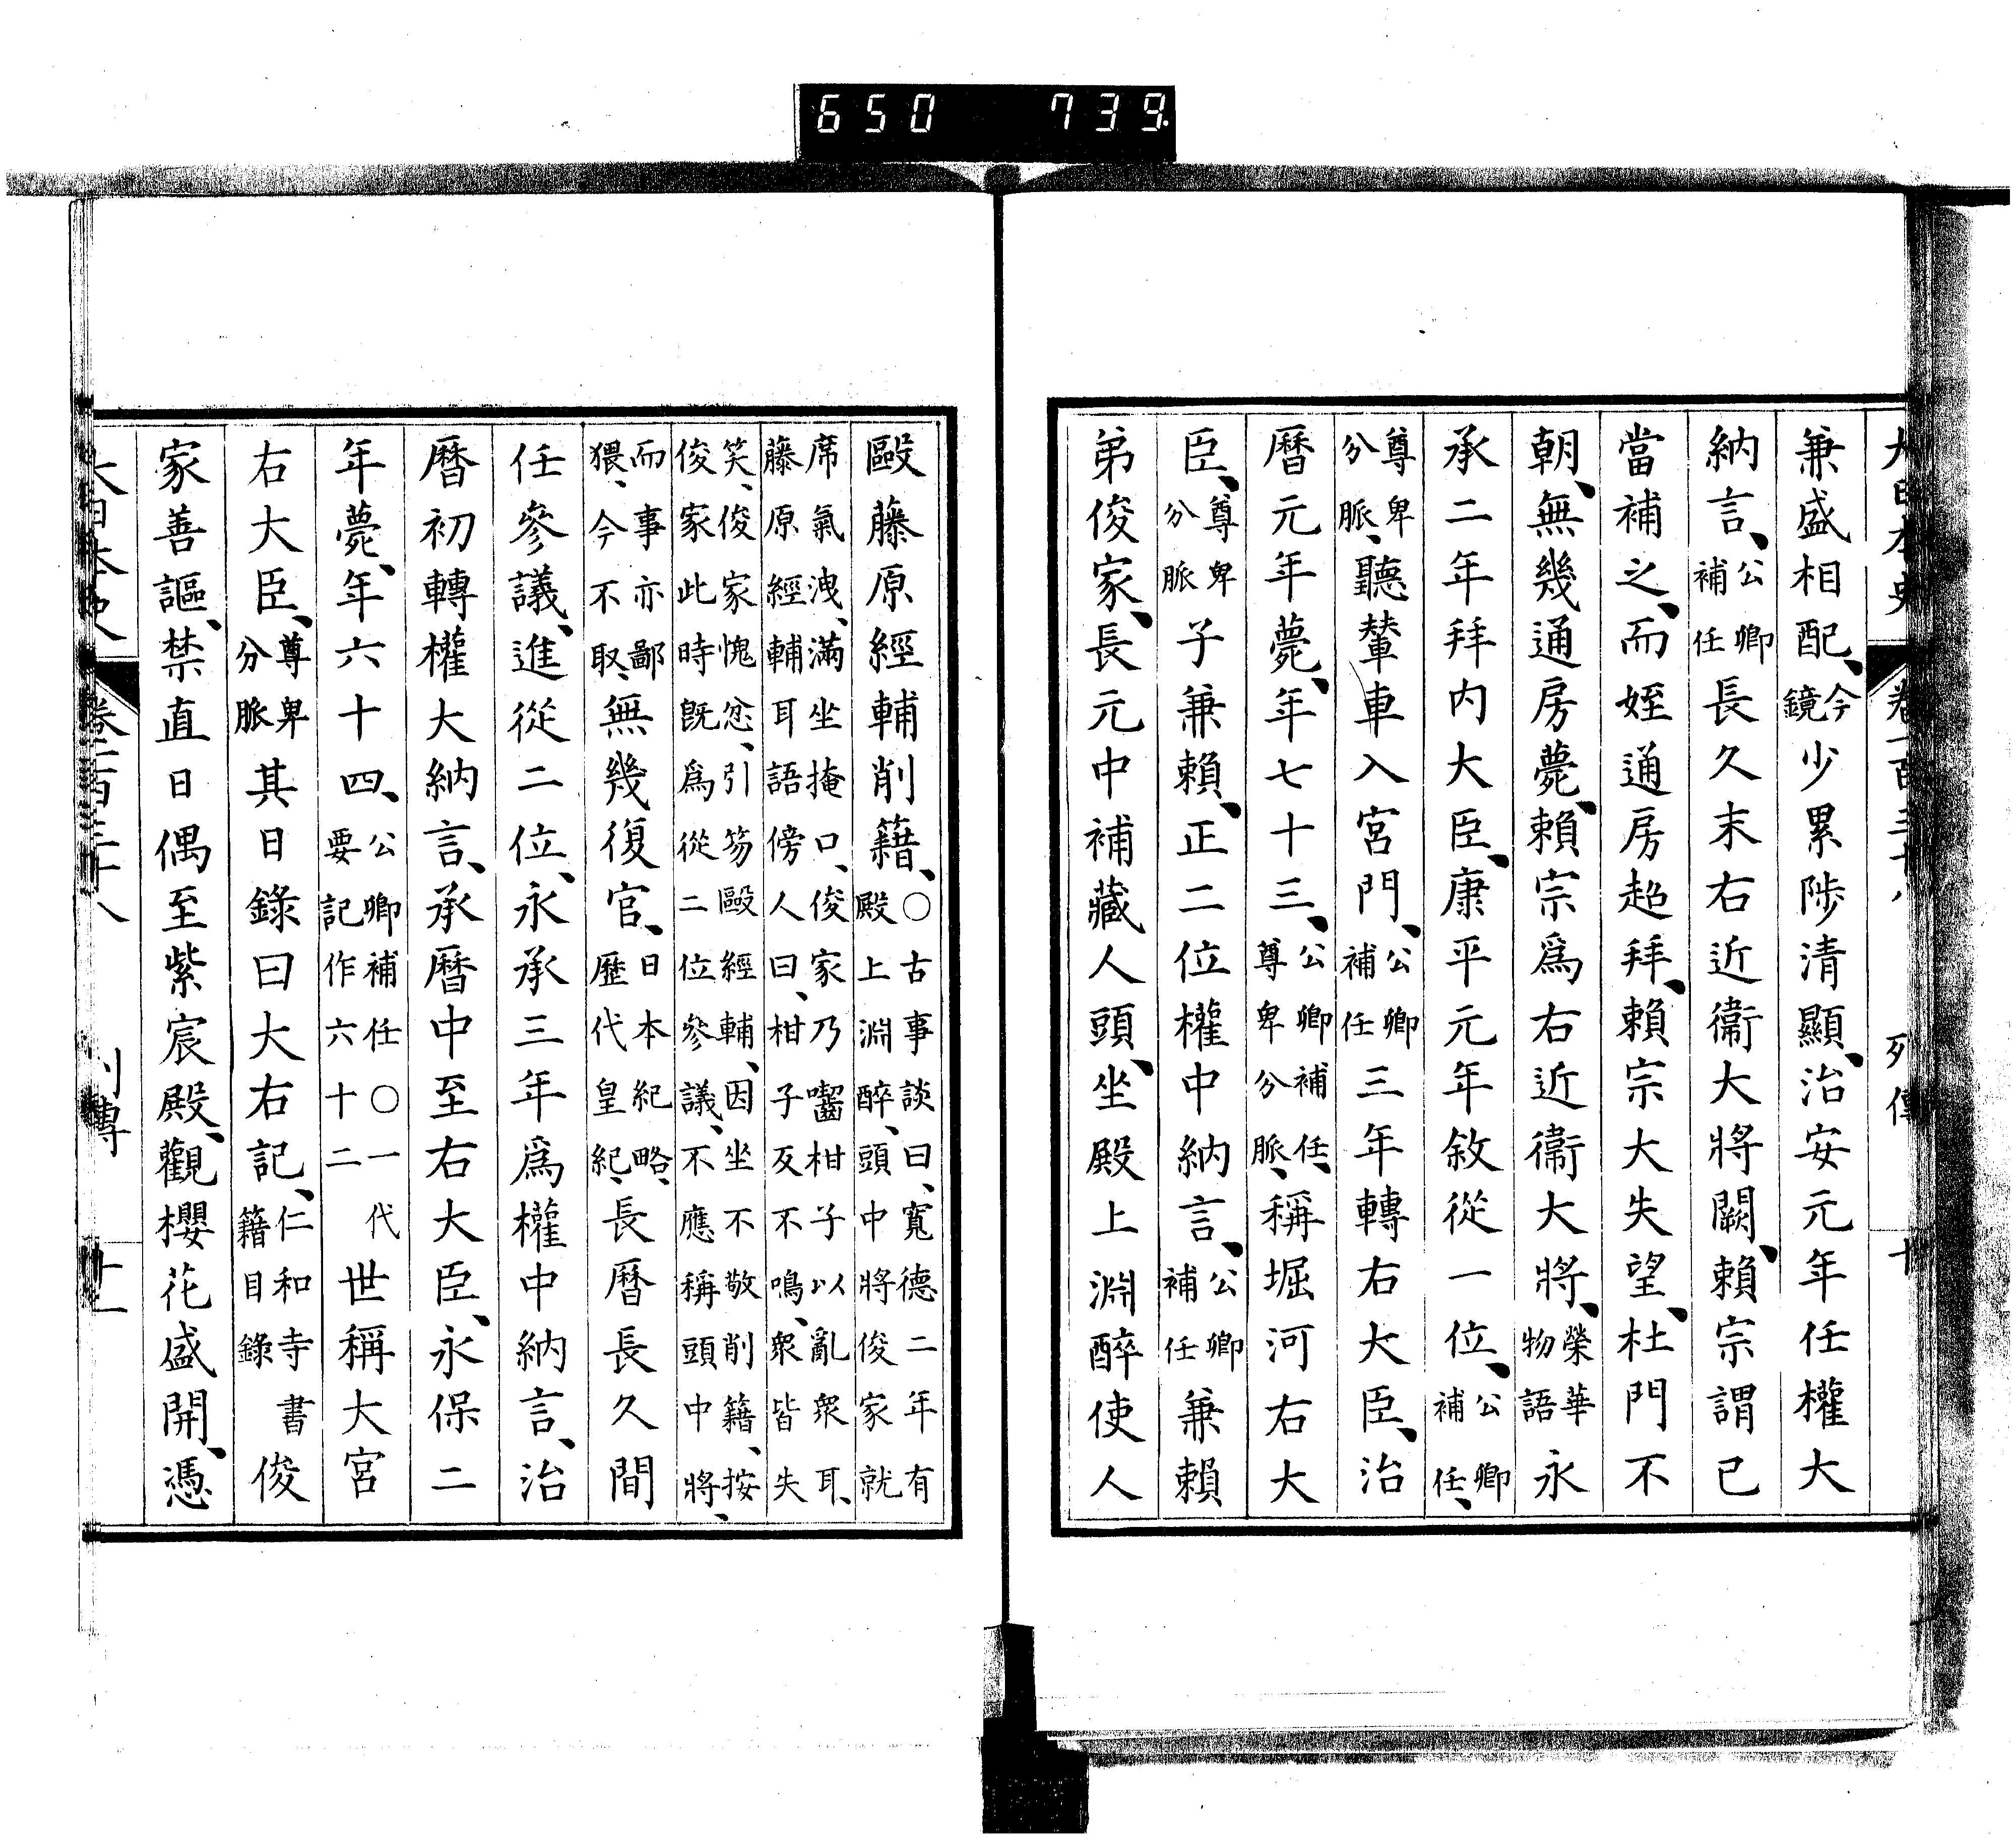 650 739
大日本史 卷一百三十八 列傳 十
兼盛相配、今鏡少累陟清顯、治安元年任權大
納言、公卿補任長久末右近衞大將闕、賴宗謂已
當補之、而姪通房超拜、賴宗大失望、杜門不
朝、無幾通房薨、賴宗爲右近衞大將、榮華物語永
承二年拜内大臣、康平元年敘從一位、公卿補任、
尊卑分脈、聽輦車入宮門、公卿補任三年轉右大臣、治
曆元年薨、年七十三、公卿補任、尊卑分脈、稱堀河右大
臣、尊卑分脈子兼賴、正二位權中納言、公卿補任兼賴
弟俊家、長元中補藏人頭、坐殿上淵醉使人
毆藤原經輔削籍、○古事談曰、寬德二年有殿上淵醉、頭中將俊家就
席氣洩、滿坐掩口、俊家乃嚙柑子以亂衆耳、藤原經輔耳語傍人曰、柑子及不鳴、衆皆失
笑、俊家愧忿、引笏毆經輔、因坐不敬削籍、按、俊家此時既爲從二位參議、不應稱頭中將、
而事亦鄙猥、今不取、無幾復官、日本紀略、歷代皇紀、長曆長久間
任參議、進從二位、永承三年爲權中納言、治
曆初轉權大納言、承曆中至右大臣、永保二
年薨、年六十四、公卿補任○一代要記作六十二世稱大宮
右大臣、尊卑分脈其日錄曰大右記、仁和寺書籍目錄俊
家善謳、禁直日偶至紫宸殿、觀櫻花盛開、憑
大日本史 卷一百三十八 列傳 十一